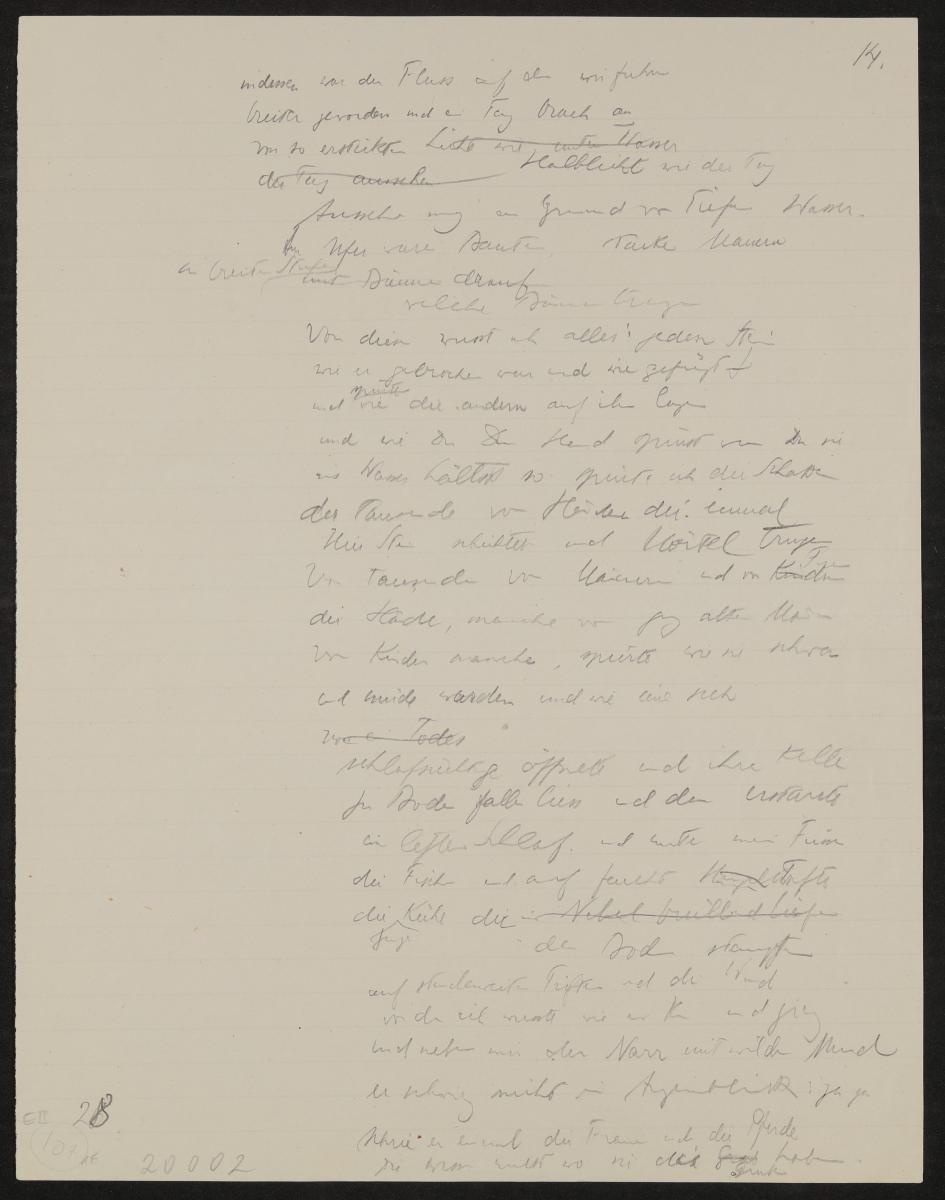 14.
indessen war der Fluss auf dem wir fuhren
breiter geworden und ein Tag brach an
von so ersticktem Licht wie unter Wasser
der Tag aussehen Halblicht wie der Tag
Aussehen mag am Grund von tiefem Wasser.
Am Ufer waren Bauten, starke Mauern
an breiten Stufen
mit Bäume drauf
welche Bäume trugen
Von diesen wusst ich alles: jeden Stein
wie er gebrochen war und wie gefügt
spürte
und wie die andern auf ihm lagen
und wie Du Dein Hand spürst wenn Du sie
ins Wasser hältst so spürte ich die Schatten
der Tausende von Händen die einmal
Hier Stein schichteten und Mörtel trugen
Von Tausenden von Männern und von Frauen
die Hände, manche von ganz alten Männern
von Kindern manche, spürte wie sie schwer
und müde wurden und wie eine sich
von Todes
schlafsüchtig öffnete und ihre Kelle
zu Boden fallen liess und dann erstarrte
im letzten Schlaf. und unter meinen Füssen
die Fische und auf feuchter Trifte
die Kühe die im Nebel
den Boden stampften
auf Trifte und der Wind
von dem ich wusste wie er kam und ging
und neben mir der Narr mit wildem Mund
er schwieg nicht einen Augenblick: ja ja
schrie er einmal die Frauen und die Pferde
die wissen nicht wo sie haben.
EIII 28
107
20002